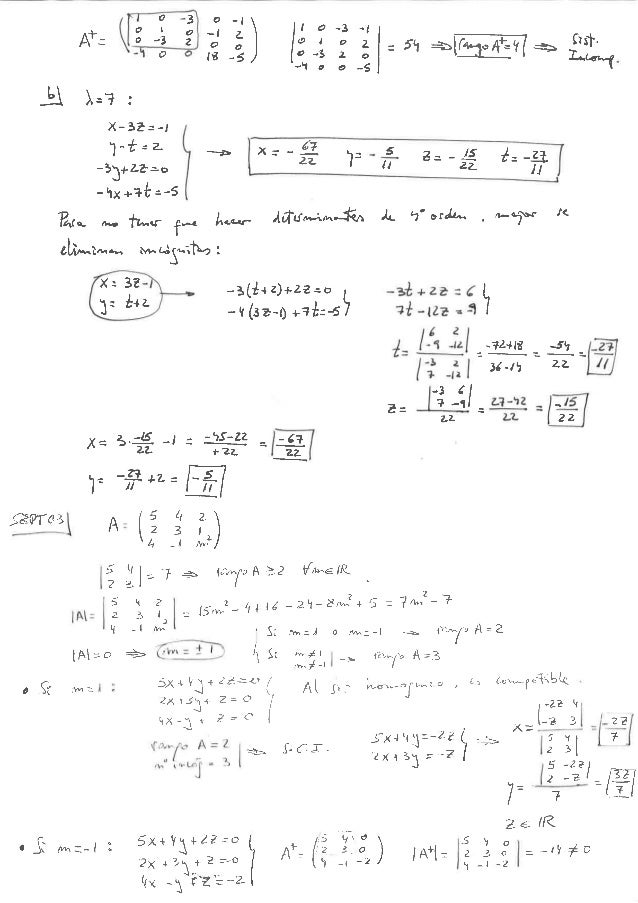 A⁺ = ( 1 0 -3 0 -1 ; 0 1 0 -1 2 ; 0 -3 2 0 0 ; -4 0 0 18 -5 )   | 1 0 -3 -1 ; 0 1 0 2 ; 0 -3 2 0 ; -4 0 0 -5 | = 54 ⇒ rango A⁺=4 ⇒ Sist. Incomp.
b) λ=7 :
x-3z=-1
y-t=2
-3y+2z=0
-4x+7t=-5
→ x = -67/22   y = -5/11   z = -15/22   t = -27/11
Para no tener que hacer determinantes de 4º orden, mejor se
eliminan incógnitas:
x = 3z-1
y = t+2
→ -3(t+2)+2z=0
-4(3z-1)+7t=-5
-3t+2z=6
7t-12z=-9
t = |6 2 ; -9 -12| / |-3 2 ; 7 -12| = (-72+18)/(36-14) = -54/22 = -27/11
z = |-3 6 ; 7 -9| / 22 = (27-42)/22 = -15/22
x = 3·-15/22 -1 = (-45-22)/+22 = -67/22
y = -27/11 +2 = -5/11
SEPT 03   A = ( 5 4 2 ; 2 3 1 ; 4 -1 m² )
|5 4 ; 2 3| = 7 ⇒ rango A ≥ 2 ∀m∈IR.
|A| = | 5 4 2 ; 2 3 1 ; 4 -1 m² | = 15m²-4+16-24-8m²+5 = 7m²-7
|A|=0 ⇒ m = ±1
Si m=1 o m=-1 → rango A=2
Si m≠1 m≠-1 → rango A=3
• Si m=1 :
5x+4y+2z=0
2x+3y+z=0
4x-y+z=0
Al ser homogéneo, es compatible.
rango A = 2
nº incóg = 3
⇒ S.C.I.
5x+4y=-2z
2x+3y=-z
⇒ x = |-2z 4 ; -z 3| / |5 4 ; 2 3| = -2z/7
y = |5 -2z ; 2 -z| / 7 =
z ∈ IR
• Si m=-1 :
5x+4y+2z=0
2x+3y+z=0
4x-y+z=-2
A⁺ = ( 5 4 0 ; 2 3 0 ; 4 -1 -2 )   |A⁺| = | 5 4 0 ; 2 3 0 ; 4 -1 -2 | = -14 ≠ 0